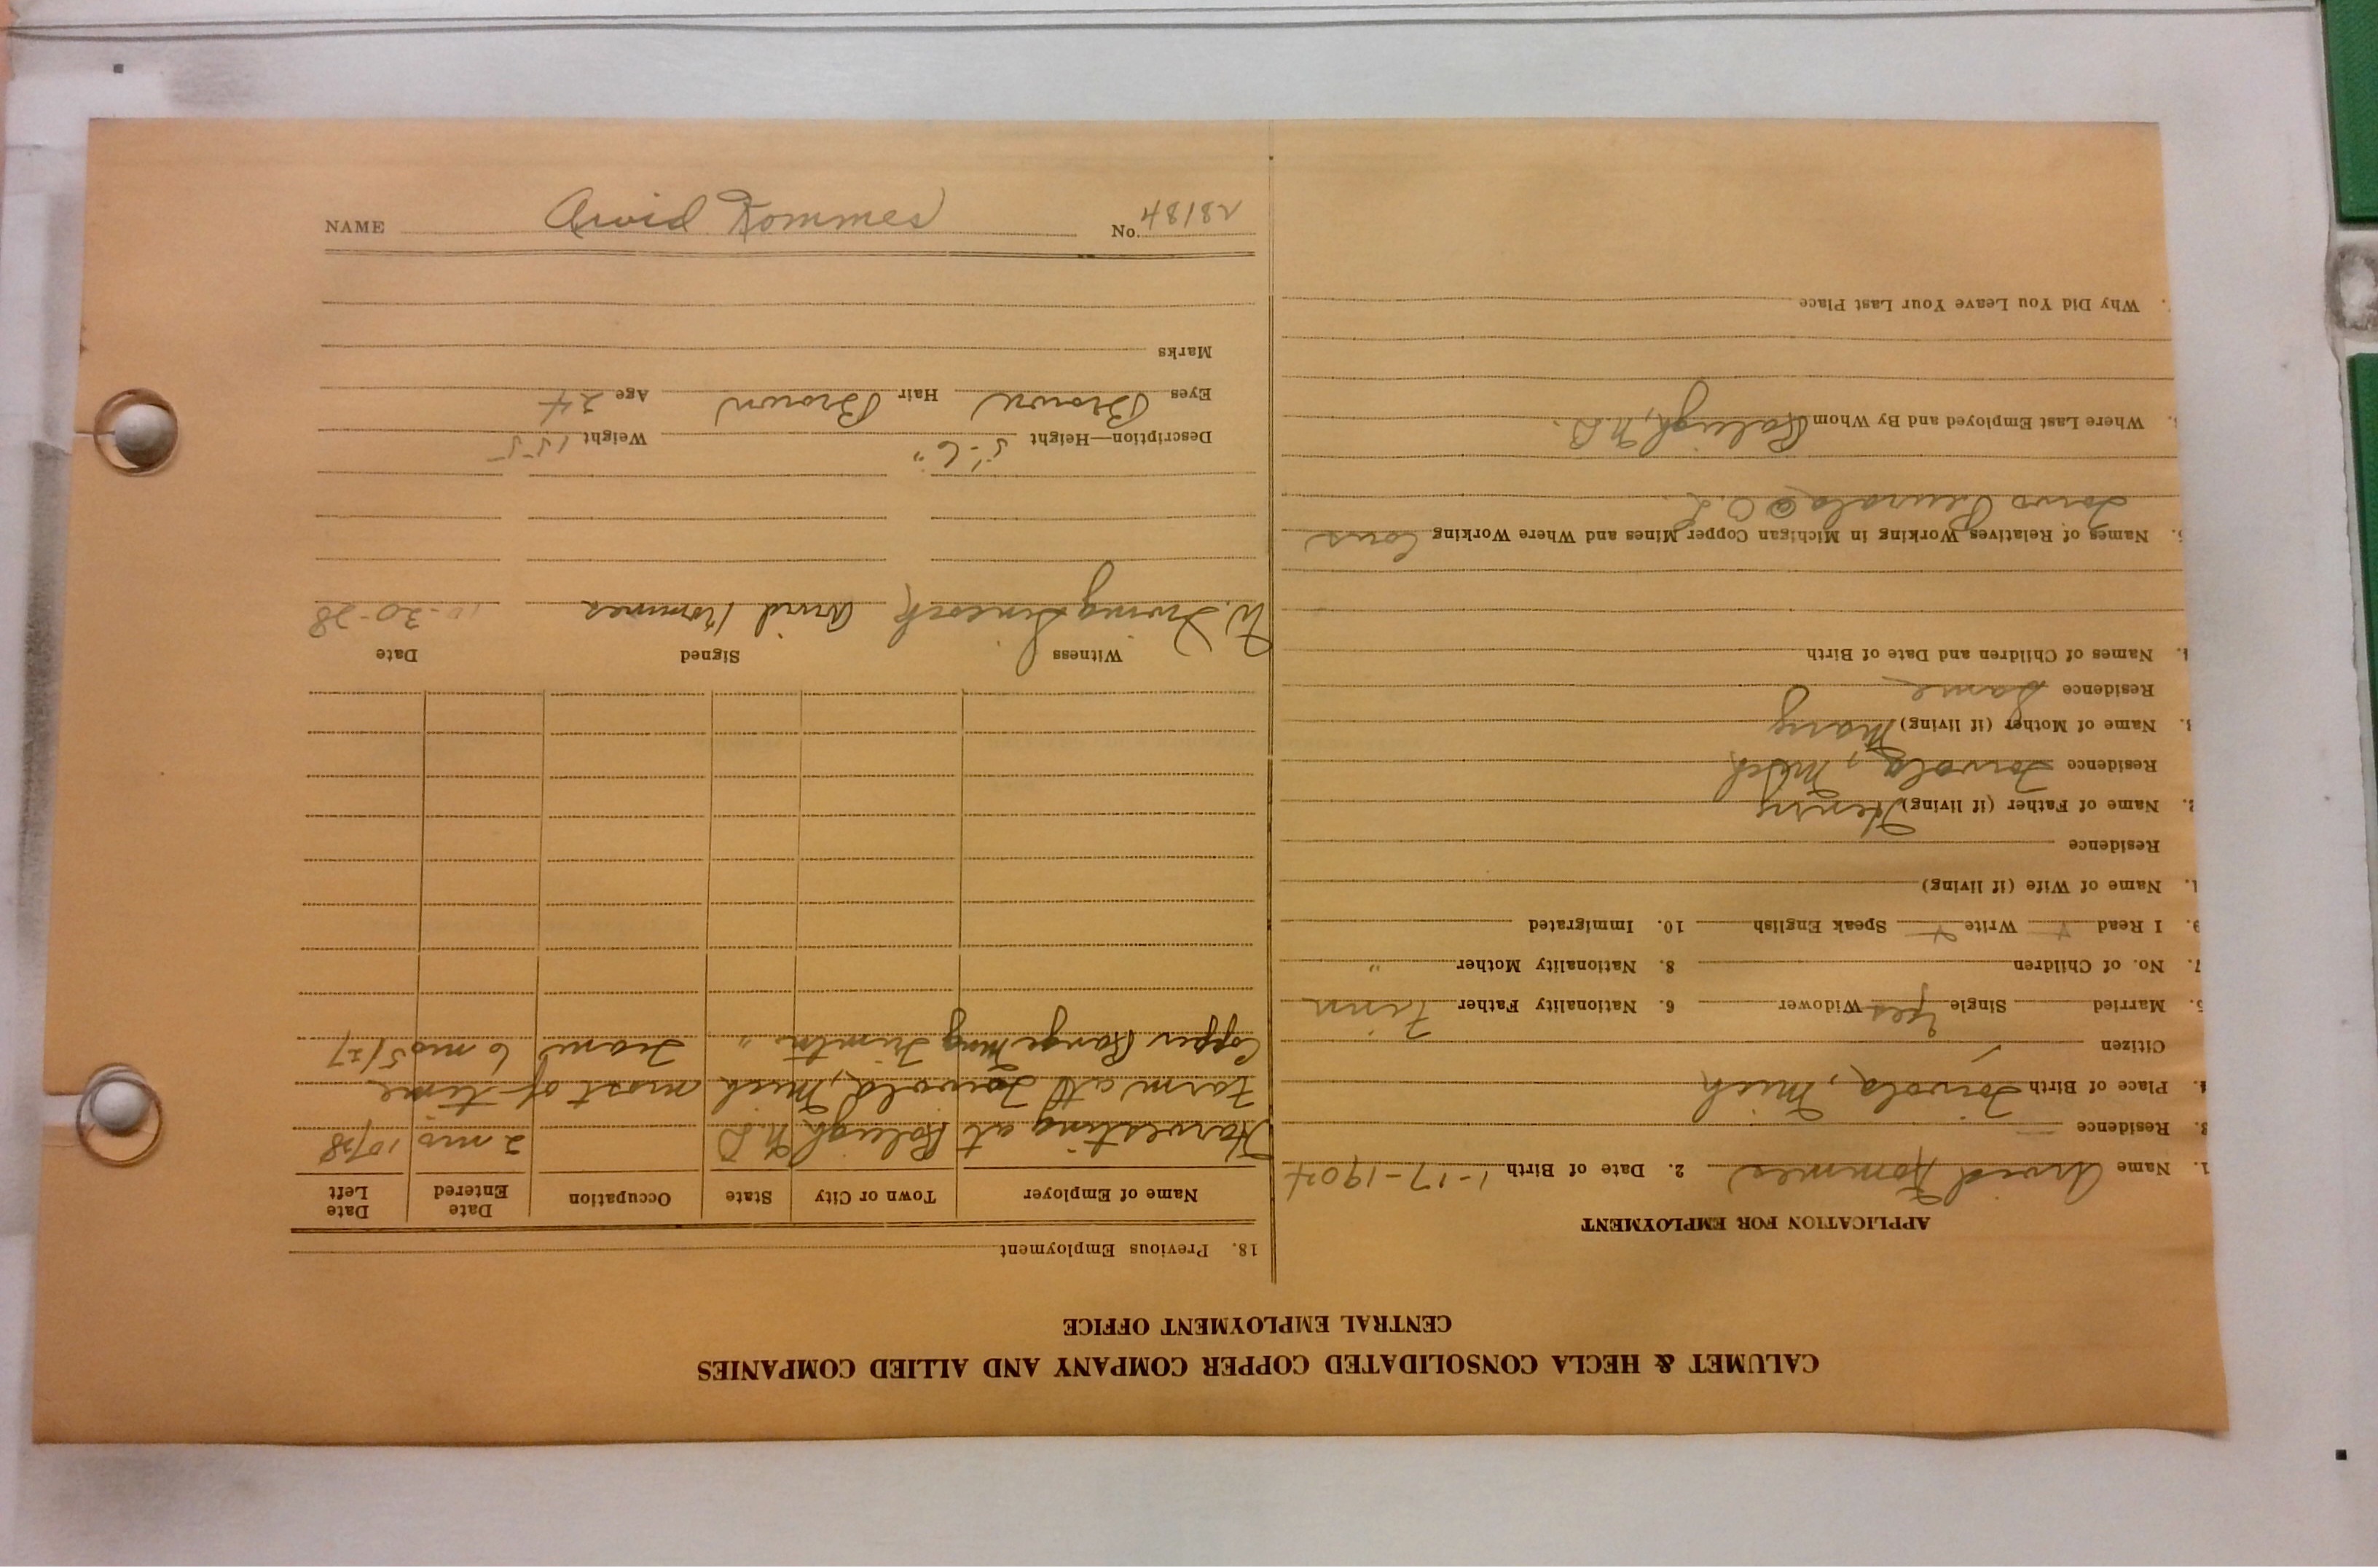 CALUMET & HECLA CONSOLIDATED COPPER COMPANY AND ALLIED COMPANIES
CENTRAL EMPLOYMENT OFFICE
APPLICATION FOR EMPLOYMENT
1. Name Arvid Kommes 2. Date of Birth 1-17-1904
3. Residence
4. Place of Birth Toivola, Mich
Citizen
5. Married Single Yes Widower 6. Nationality Father Finn
7. No. of Children 8. Nationality Mother "
9. I Read + Write + Speak English 10. Immigrated
1. Name of Wife (if living)
Residence
2. Name of Father (if living) Henry
Residence Toivola, Mich
3. Name of Mother (if living) Mary
Residence Same
4. Names of Children and Date of Birth
5. Names of Relatives Working in Michigan Copper Mines and Where Working Cous
@ C.L.
Where Last Employed and By Whom Raleigh, N.D.
Why Did You Leave Your Last Place
18. Previous Employment
Name of Employer Town or City State Occupation Date Entered Date Left
Harvesting at Raleigh N.D 2 mos 10/28
Farm at Toivola, Mich most of time
Copper Range Ming Trimtn. " Tram 6 mos 5/27
Witness Signed Date
W. Irving Arvid Kommes 10-30-28
Description—Height 5'-6" Weight 155
Eyes Brown Hair Brown Age 24
Marks
NAME Arvid Kommes No. 48182